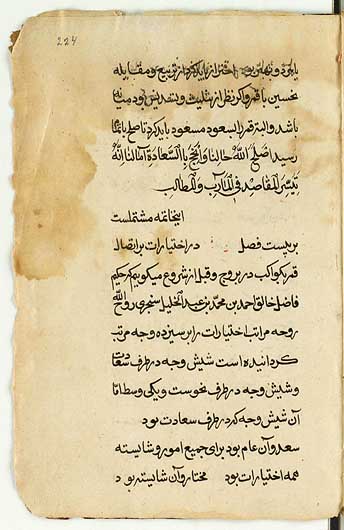 224
باید کرد از تربیع و مقابله
نحسین با قمر و اگر نظر از تثلیث و تسدیس بود میانه
باشد و البته قمر السعود مسعود باید کرد تا صلاح
رسید اصلح الله حالنا و انجح بالسعادة آمالنا انه
تیسر المقاصد فی المآرب و المطالب
اینخاتمه مشتملست
بر بیست فصل در اختیارات بر اتصال
قمر بکواکب در بروج و قبل از شروع میگویم که حکیم
فاضل خالق احمد بن محمد بن عبد الجلیل سنجری روح الله
روحه مراتب اختیارات را بر سیزده وجه مرتب
کردانیده است شیش وجه در طرف سعادت
و شیش وجه در طرف نحوست و یکی وسط اما
آن شیش وجه که در طرف سعادت بود
سعد و آن عام بود برای جمیع امور و شایسته
همه اختیارات بود مختار و آن شایسته بود